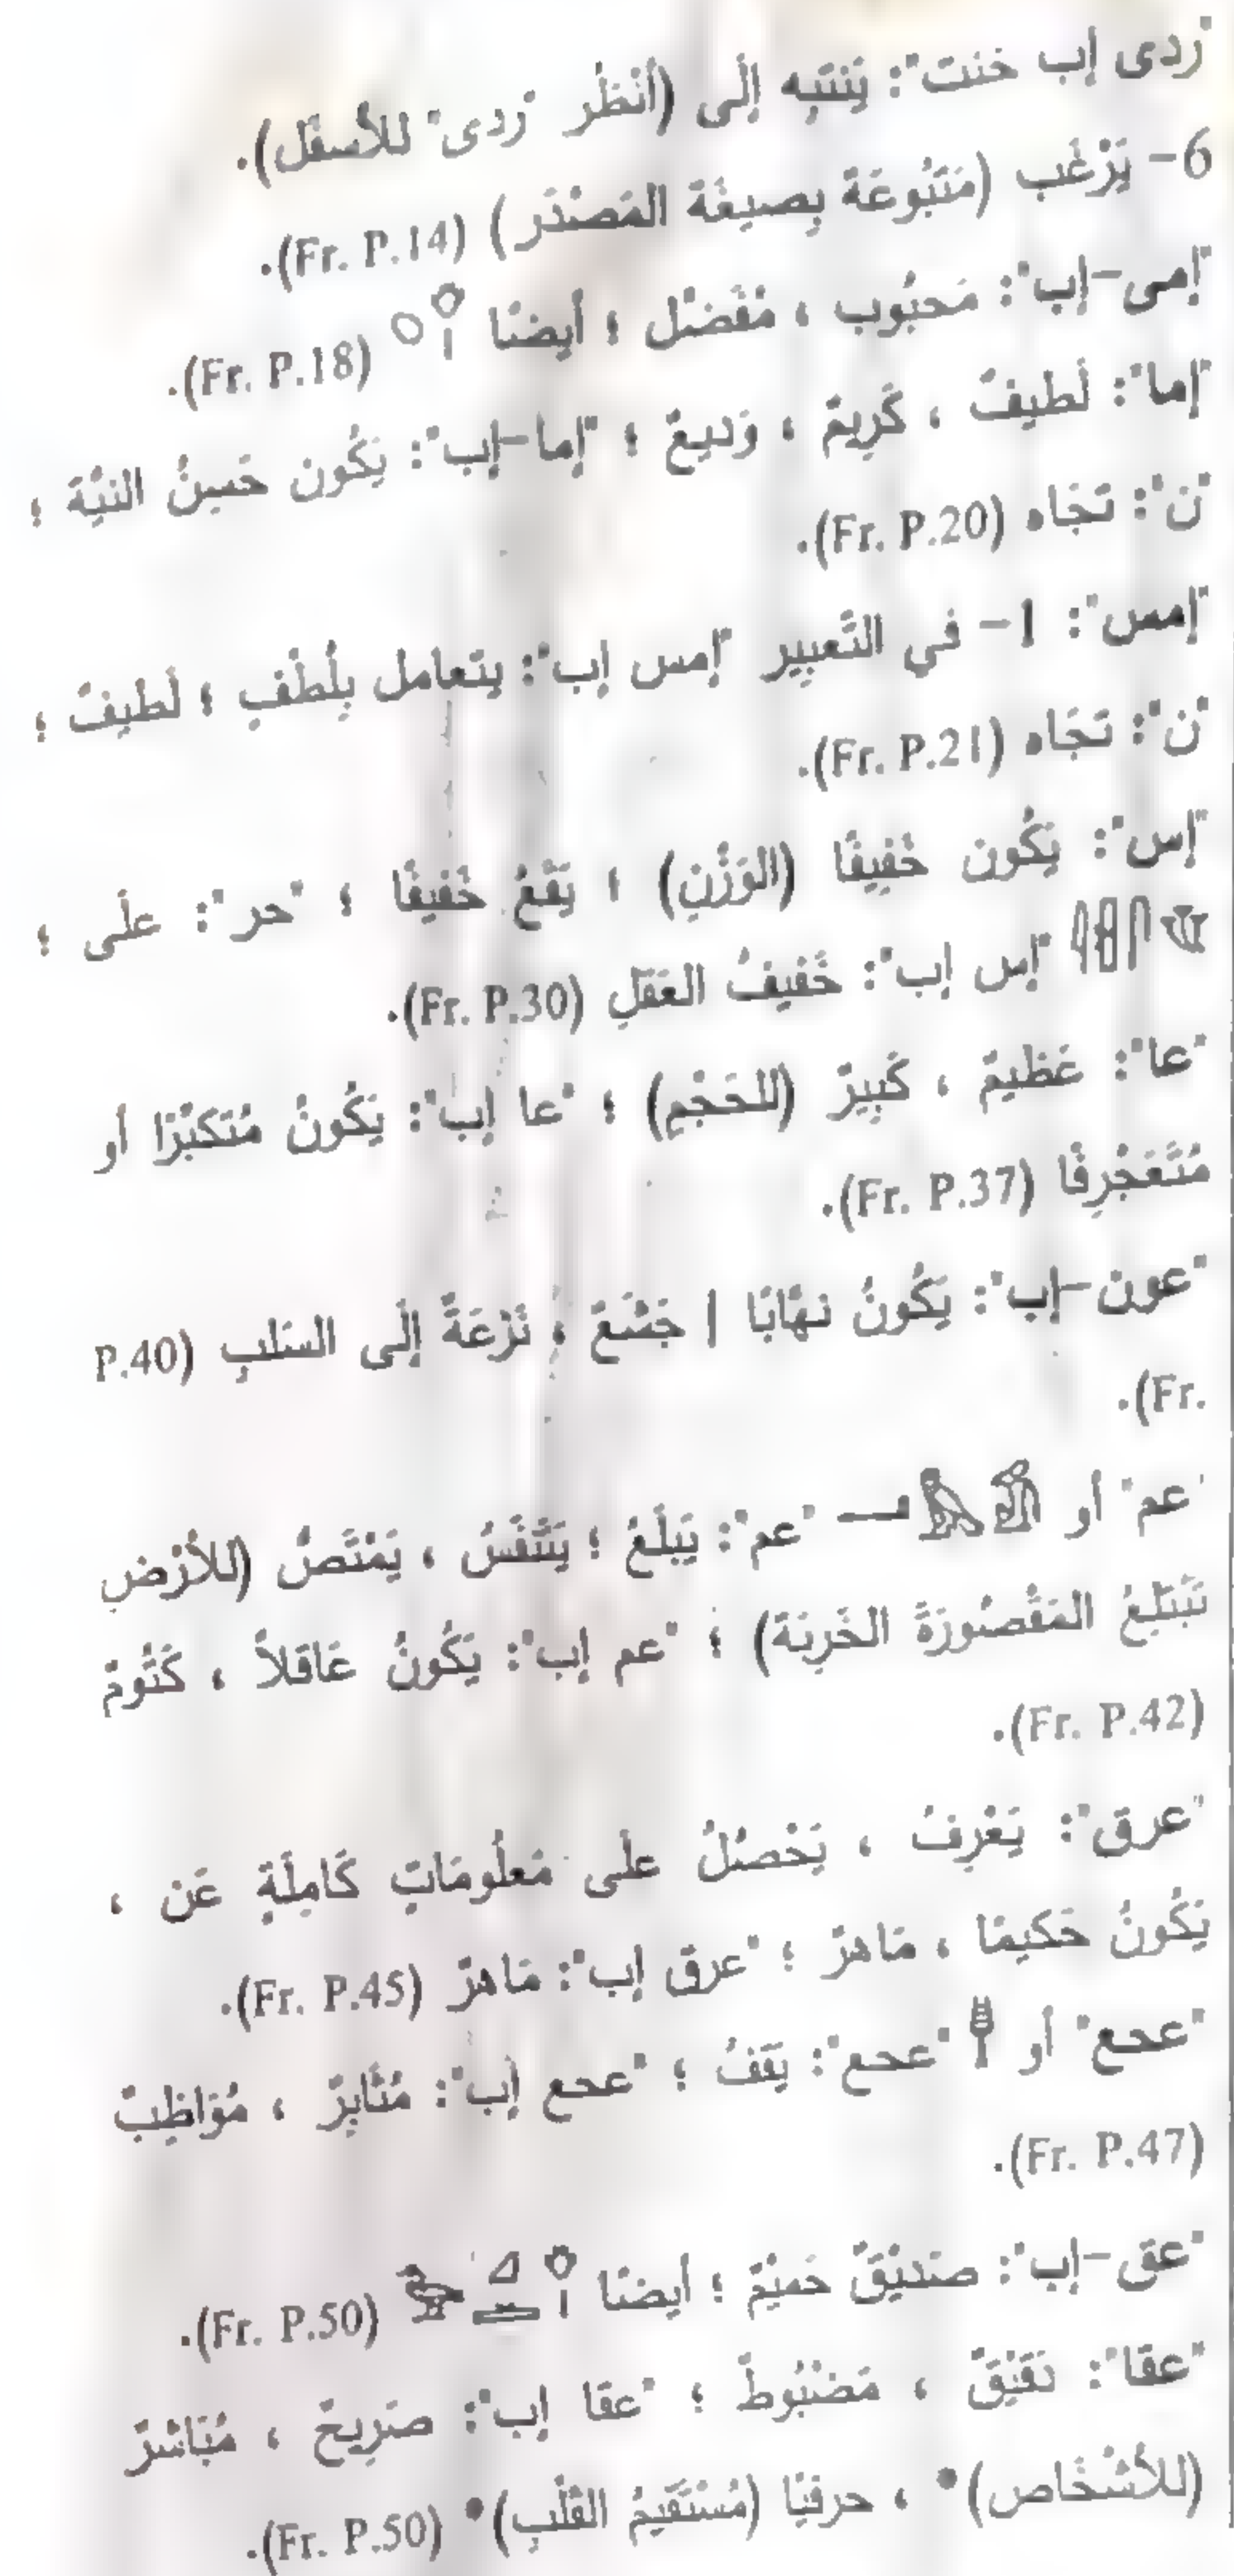 "ردى إب خنت": يَنتَبِه إلَى (أُنْظُر "ردى" للأسفَل).
6- يَرْغَب (مَتبُوعَةً بِصيغَة المَصنْدَر) (Fr. P.14).
"إمى-إب": مَحبُوب ، مُفَضنَّل ؛ أيضنًا (Fr. P.18).
"إما": لَطيفٌ ، كَرِيمٌ ، وَديعٌ ؛ "إما-إب": يَكُون حَسِنُ النيَّة ؛
"ن": تجَاه (Fr. P.20).
"إمس": 1- في التَّعبِير "إمس إب": يتعامل بِلُطْفٍ ؛ لَطيفٌ ؛
"ن": تجَاه (Fr. P.21).
"إس": يَكُون خَفِيفًا (الوَزْنِ) ؛ يَقَعُ خَفيفًا ؛ "حر": علَى ؛
"إس إب": خَفيفُ العَقلِ (Fr. P.30).
"عا": عَظيمٌ ، كَبِيرٌ (للحَجْمِ) ؛ "عا إب": يَكُونُ مُتكبِّرًا أو
مُتَعَجْرِفًا (Fr. P.37).
"عون-إب": يَكُونُ نهَّابًا | جَشَعٌ ؛ نَزْعَةً إلَى السَلبِ (P.40
Fr.).
"عم" أو "عم": يَبلَعُ ؛ يَتَنَفَّسُ ، يَمْتَصُّ (للأَرْضِ
تَبْتَلِعُ المَقْصُورَةَ الخَرِبَة) ؛ "عم إب": يَكُونُ عَاقلاً ، كَتُومٌ
(Fr. P.42).
"عرق": يَعْرِفُ ، يَحْصُلُ علَى مَعلُومَاتٍ كَامِلَةٍ عَن ،
يَكُونُ حَكيمًا ، مَاهرٌ ؛ "عرق إب": مَاهرٌ (Fr. P.45).
"عحع" أو "عحع": يَقفُ ؛ "عحع إب": مُثَابِرٌ ، مُوَاظِبٌ
(Fr. P.47).
"عق-إب": صَديْقٌ حَميْمٌ ؛ أيضنًا (Fr. P.50).
"عقا": دَقَيْقٌ ، مَضنْبُوطٌ ؛ "عقا إب": صَرِيحٌ ، مُبَاشرٌ
(للأَشْخَاص)• ، حرفيًا (مُسْتَقيمُ القَلْبِ)• (Fr. P.50).